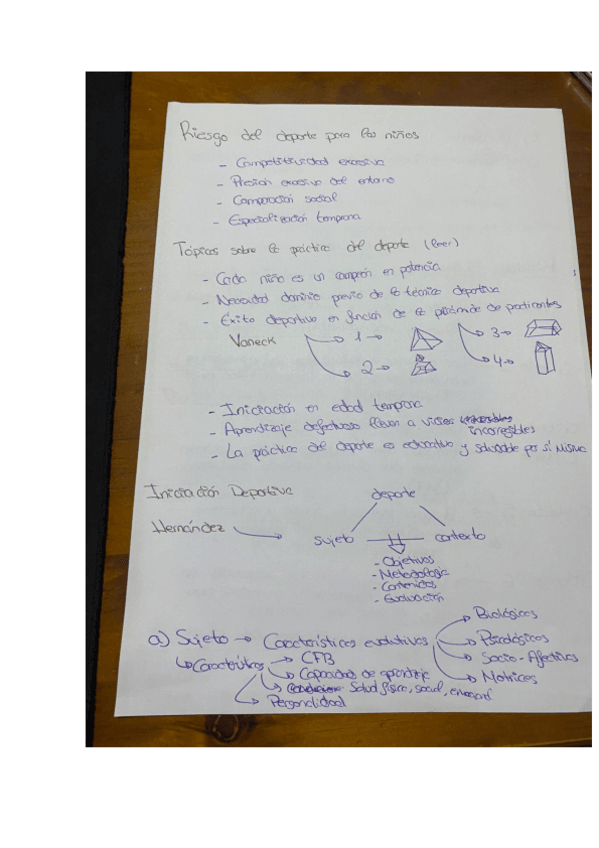 Riesgo del deporte para los niños
- Competitividad excesiva
- Presión excesiva del entorno
- Comparación social
- Especialización temprana
Tópicos sobre la práctica del deporte (leer)
- Cada niño es un campeón en potencia
- Necesidad dominio previo de la técnica deportiva
- Éxito deportivo en función de la pirámide de practicantes
Vaneck 1→ 3→
2→ 4→
- Iniciación en edad temprana
- Aprendizaje defectuoso llevan a vicios
incorregibles
- La práctica del deporte es educativo y saludable por sí misma
Iniciación Deportiva
deporte
Hernández → sujeto contexto
- Objetivos
- Metodología
- Contenidos
- Evaluación
a) Sujeto → Características evolutivas → Biológicos
→ Psicológicos
→ Socio-Afectivos
→ Motrices
↳ Características → CFB
↳ Capacidad de aprendizaje
↳ Salud física, social, emocional
↳ Personalidad